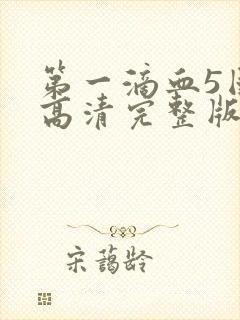 第一滴血5国
高清完整版
宋蔼龄